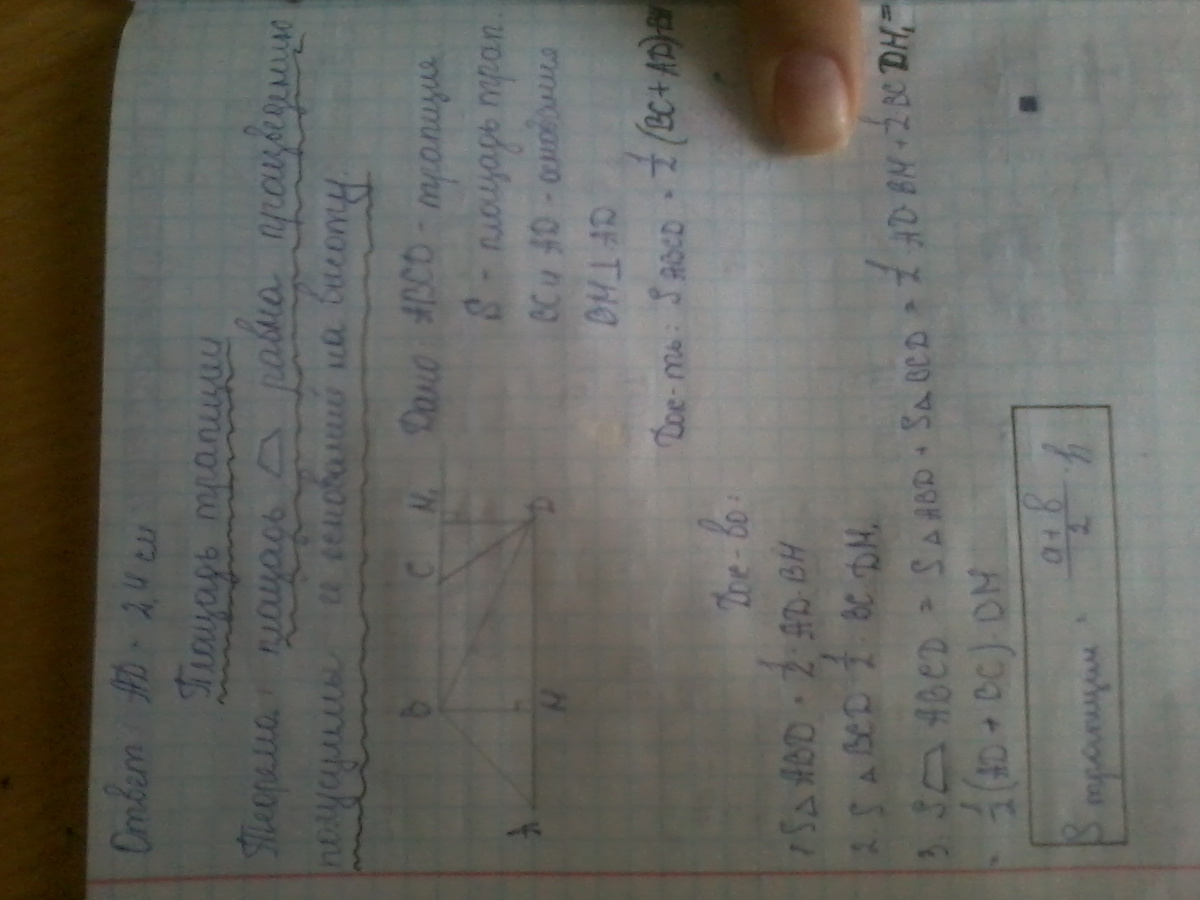 Ответ: AD = 2,4 см
Площадь трапеции
Теорема: площадь ⏢ равна произведению
полусуммы её оснований на высоту.
B C H₁
A H D
Дано: ABCD - трапеция
S - площадь трап.
BC и AD - основания
BH ⊥ AD
Док-ть: S ABCD = 1/2 (BC + AD)·BH
Док-во:
1. S△ ABD = 1/2 · AD · BH
2. S △ BCD 1/2 · BC · DH₁
3. S ⏢ ABCD = S △ ABD + S △ BCD = 1/2 AD · BH + 1/2 BC DH₁ =
= 1/2 (AD + BC) · DH
S трапеции = a+b/2 · h